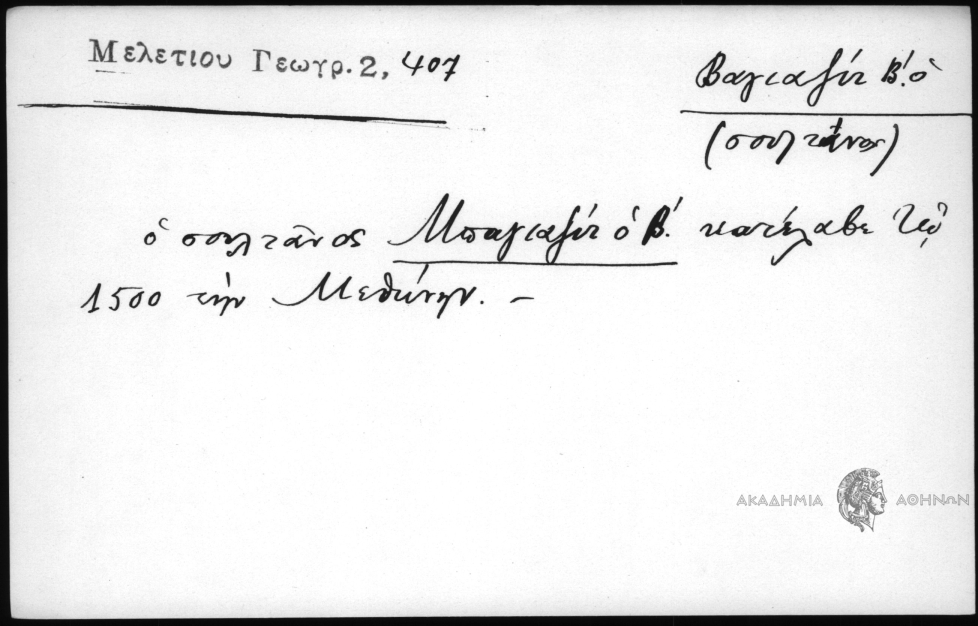 Μελετιου Γεωγρ. 2, 407
Βαγιαζίτ Β! ὁ
(σουλτάνος)
ὁ σουλτᾶνος Μπαγιαζίτ ὁ Β'. κατέλαβε τῷ
1500 τὴν Μεθώνην. –
ΑΚΑΔΗΜΙΑ ΑΘΗΝΩΝ